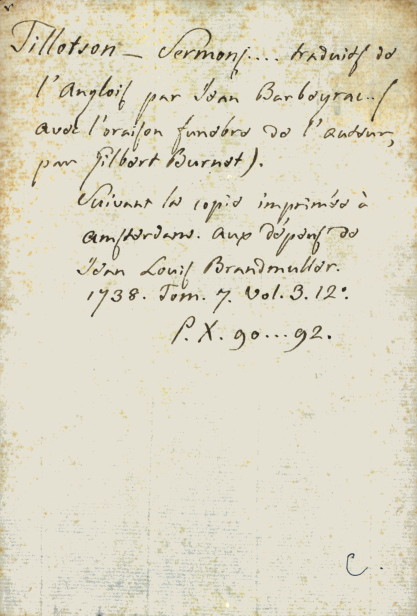 Tillotson — Sermons.... traduits de
l'Anglois par Jean Barbeyrac..(
avec l'oraison funébre de l'auteur,
par Gilbert Burnet).
Suivant la copie imprimée à
amsterdam. aux dépens de
Jéan Louis Brandmuller.
1738. Tom. 7. Vol. 3. 12°.
P. X. 90...92.
C.